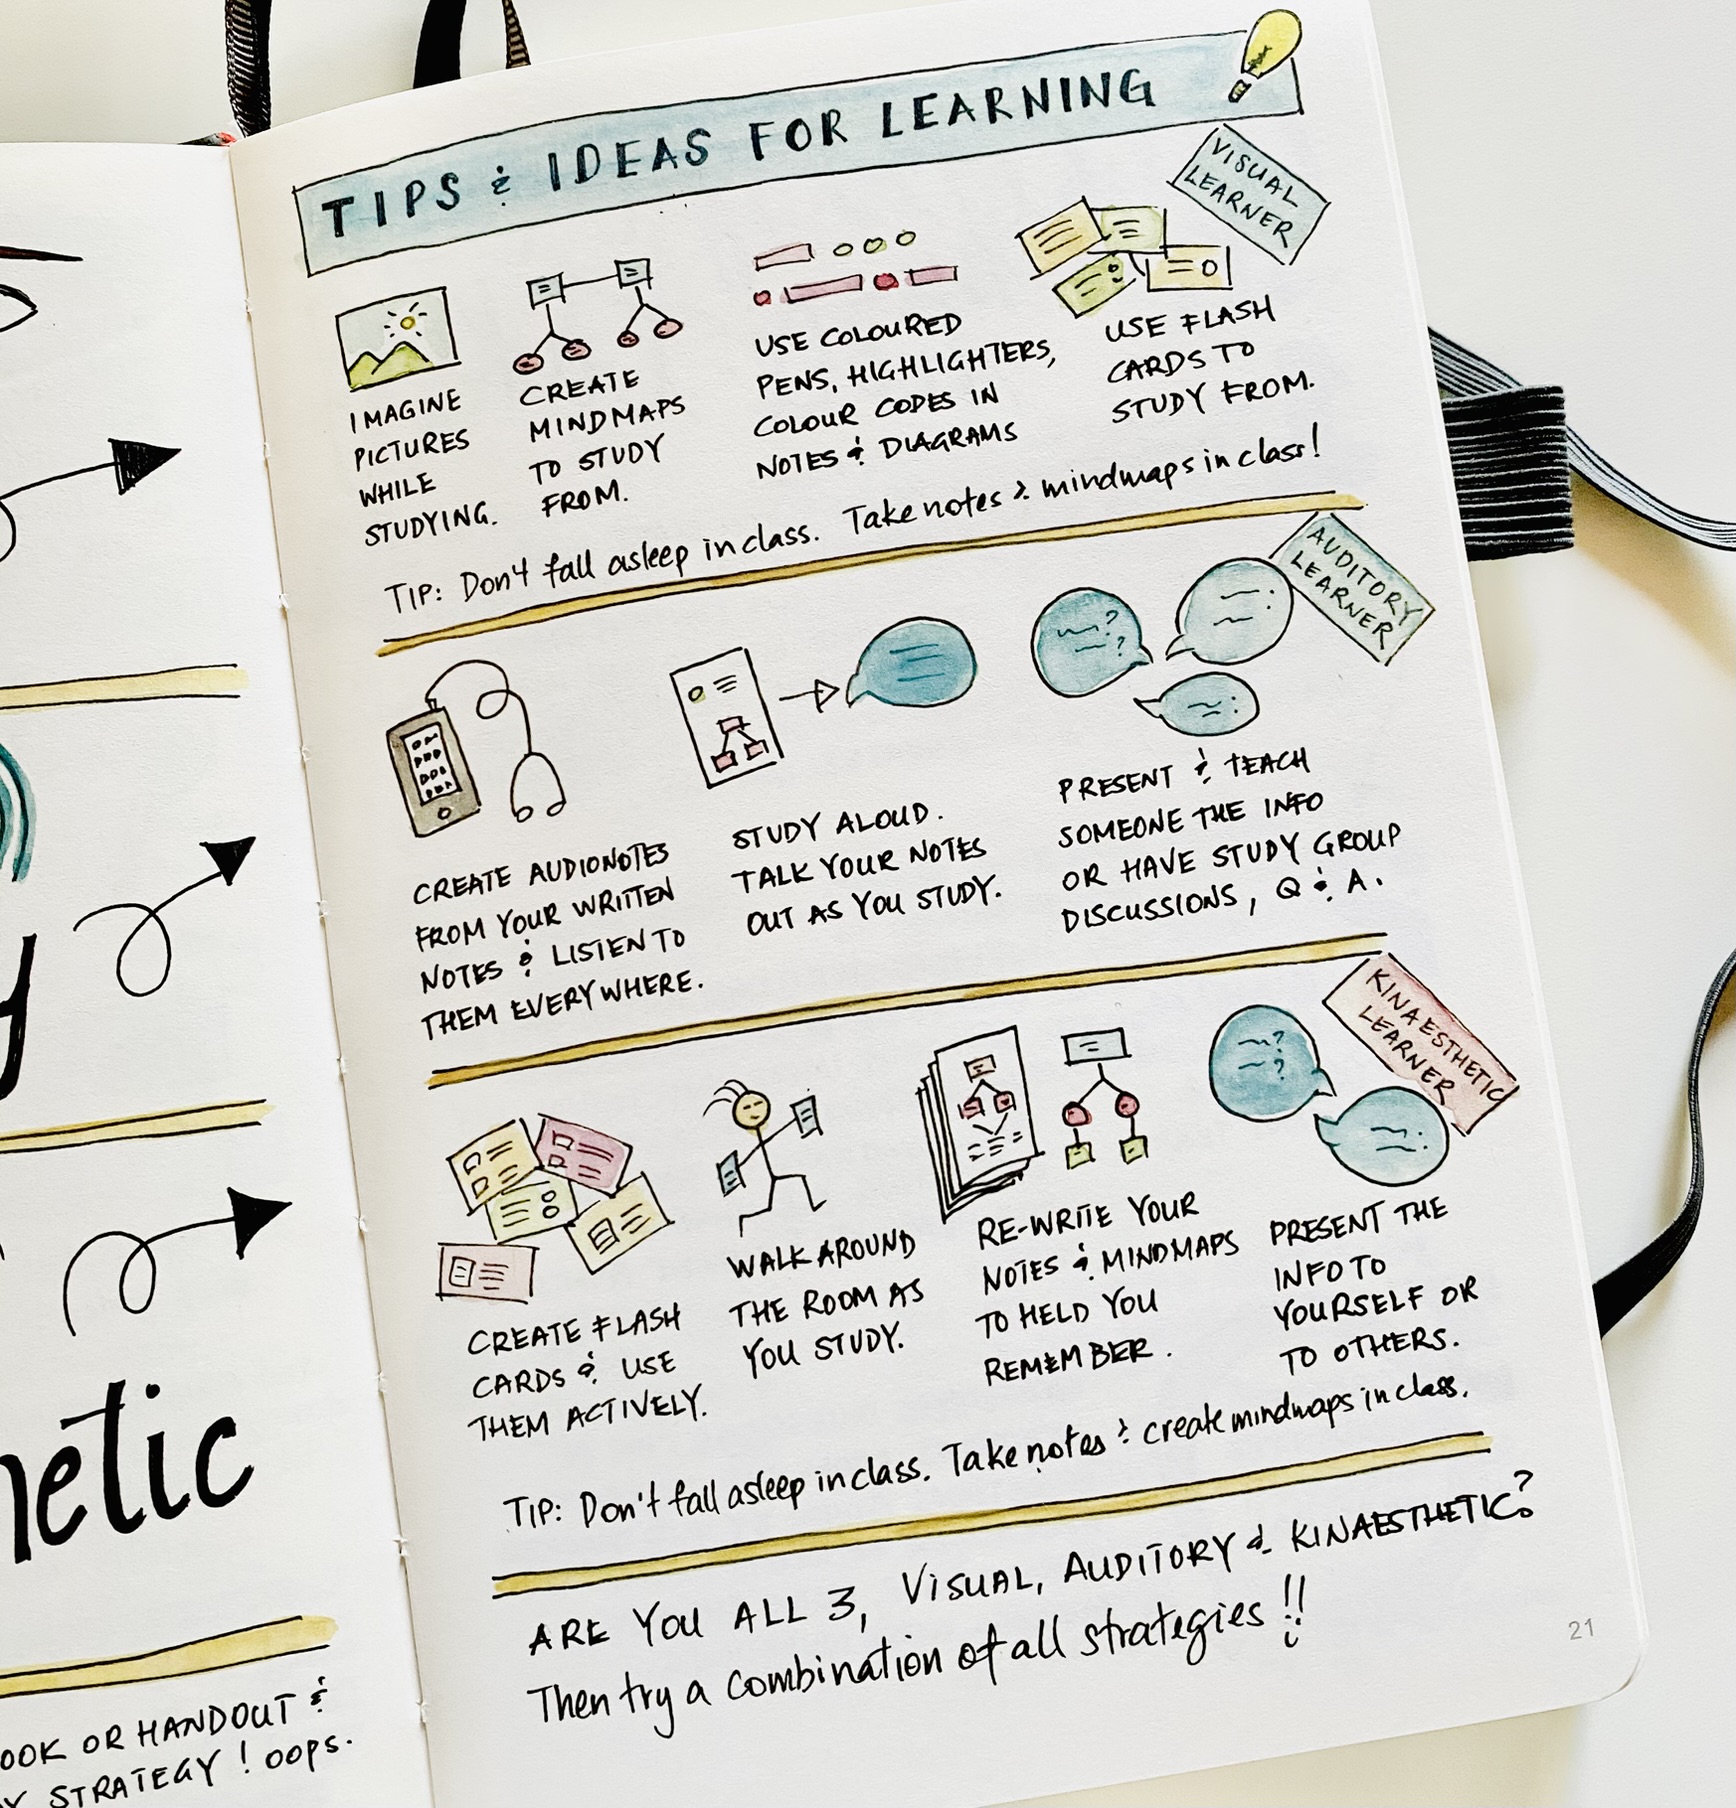 TIPS & IDEAS FOR LEARNING
VISUAL
LEARNER
IMAGINE
PICTURES
WHILE
STUDYING.
CREATE
MINDMAPS
TO STUDY
FROM.
USE COLOURED
PENS, HIGHLIGHTERS,
COLOUR CODES IN
NOTES & DIAGRAMS
USE FLASH
CARDS TO
STUDY FROM.
TIP: Don't fall asleep in class. Take notes & mindmaps in class!
AUDITORY
LEARNER
CREATE AUDIONOTES
FROM YOUR WRITTEN
NOTES & LISTEN TO
THEM EVERYWHERE.
STUDY ALOUD.
TALK YOUR NOTES
OUT AS YOU STUDY.
PRESENT & TEACH
SOMEONE THE INFO
OR HAVE STUDY GROUP
DISCUSSIONS, Q & A.
KINAESTHETIC
LEARNER
CREATE FLASH
CARDS & USE
THEM ACTIVELY.
WALK AROUND
THE ROOM AS
YOU STUDY.
RE-WRITE YOUR
NOTES & MINDMAPS
TO HELD YOU
REMEMBER.
PRESENT THE
INFO TO
YOURSELF OR
TO OTHERS.
TIP: Don't fall asleep in class. Take notes & create mindmaps in class.
ARE YOU ALL 3, VISUAL, AUDITORY & KINAESTHETIC?
Then try a combination of all strategies!!
21
OR HANDOUT &
STRATEGY! oops.